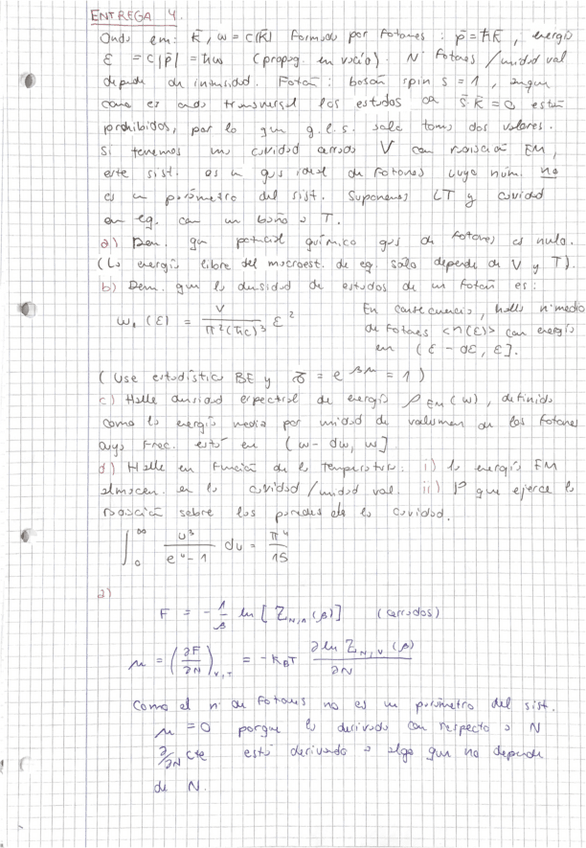 ENTREGA 4.
Onda em: k̄, ω = c|k̄| formada por fotones: p̄ = ħk̄, energía
ε = c|p̄| = ħω (propag. en vacío). Nº fotones/unidad vol
depende de intensidad. Fotón: bosón spin s = 1, aunque
como es onda transversal los estados con s̄·k̄ = 0 están
prohibidos, por lo que g.l.s. solo toma dos valores.
Si tenemos una cavidad cerrada V con radiación EM,
este sist. es un gas ideal de fotones cuyo núm. no
es un parámetro del sist. Suponemos LT y cavidad
en eq. con un baño a T.
a) Dem. que potencial químico gas de fotones es nulo.
(La energía libre del macroest. de eq. solo depende de V y T).
b) Dem. que la densidad de estados de un fotón es:
ω₁(ε) = V / π²(ħc)³ ε² En consecuencia, halle nº medio
de fotones <n(ε)> con energía
en (ε - dε, ε].
(Use estadística BE y = e^βμ = 1)
c) Halle densidad espectral de energía ρ_EM(ω), definida
como la energía media por unidad de volumen de los fotones
cuya frec. está en (ω - dω, ω]
d) Halle en función de la temperatura: i) la energía EM
almacen. en la cavidad/unidad vol. ii) P que ejerce la
radiación sobre las paredes de la cavidad.
∫₀^∞ u³ / (e^u - 1) du = π⁴/15
a)
F = - 1/β ln [Z_N,V(β)] (cerrados)
μ = (∂F/∂N)_V,T = -K_BT ∂ln Z_N,V(β) / ∂N
Como el nº de fotones no es un parámetro del sist.
μ = 0 porque la derivada con respecto a N
∂/∂N cte está derivando a algo que no depende
de N.